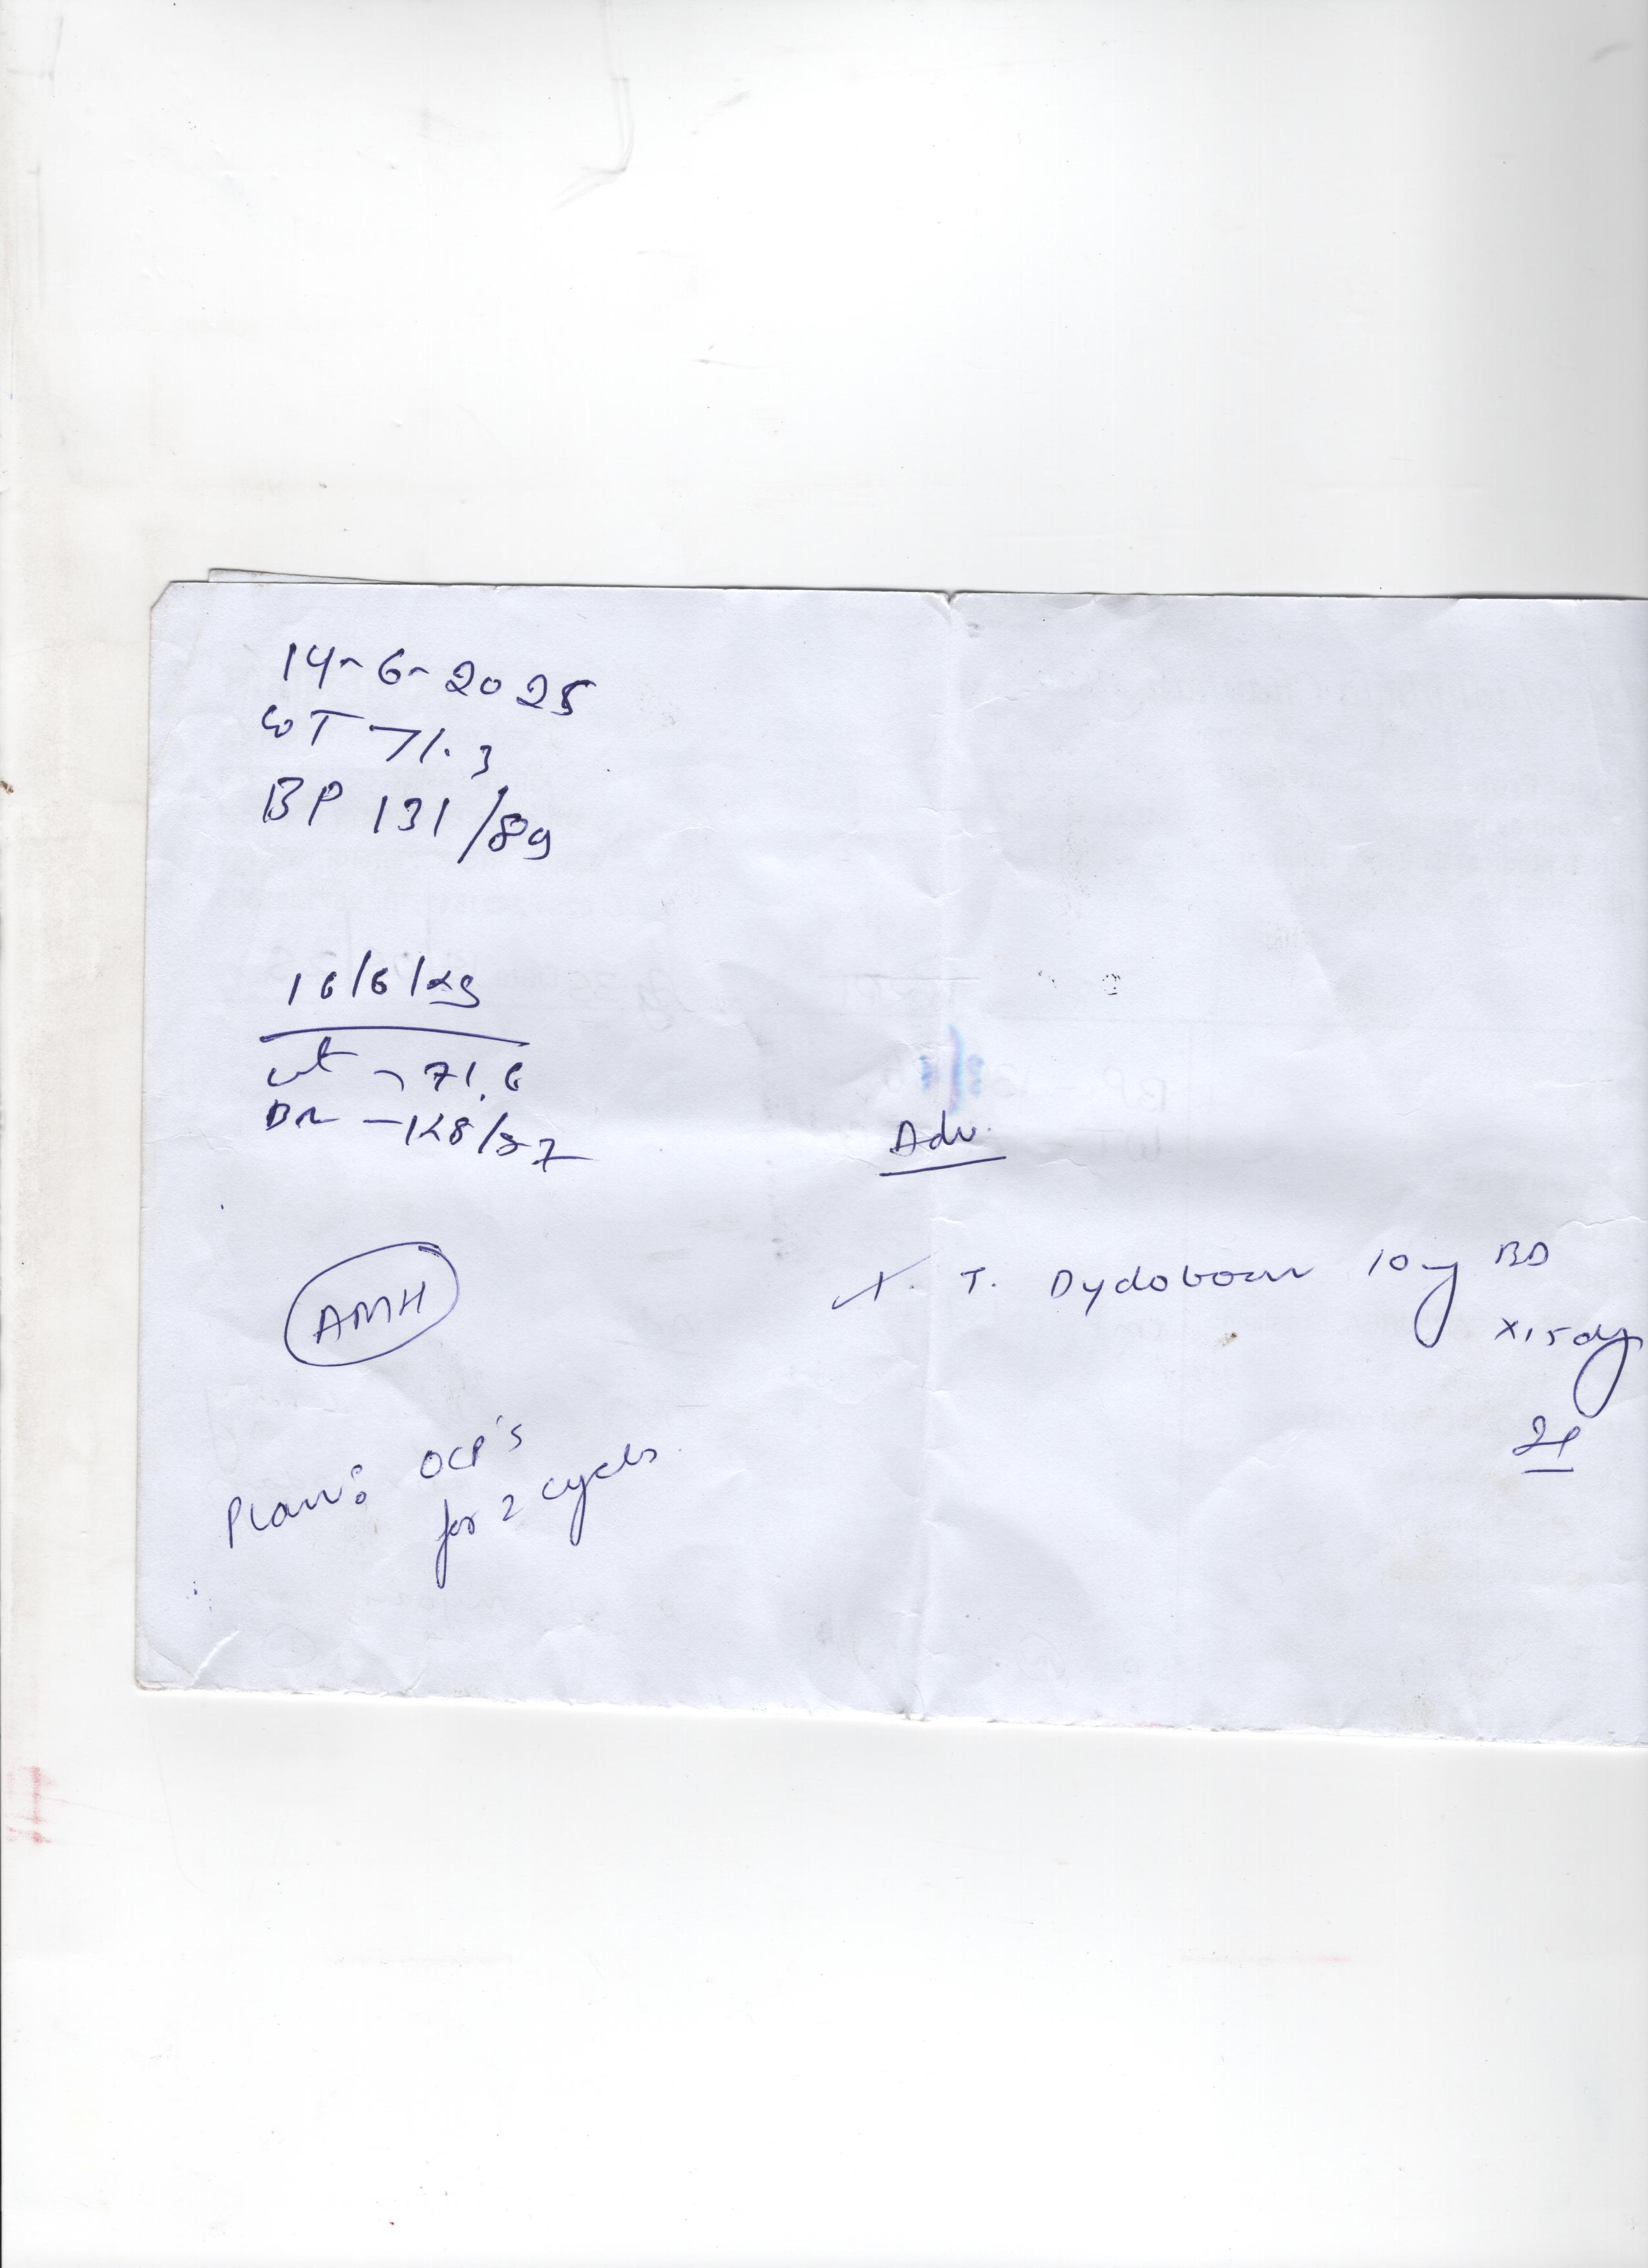 14-6-2025
WT 71.3
BP 131/89
16/6/25
wt - 71.6
BP - 128/87
Adv.
T. Dydoboon 10mg BD
x 15 days
AMH
Plan: OCP's
for 2 cycles